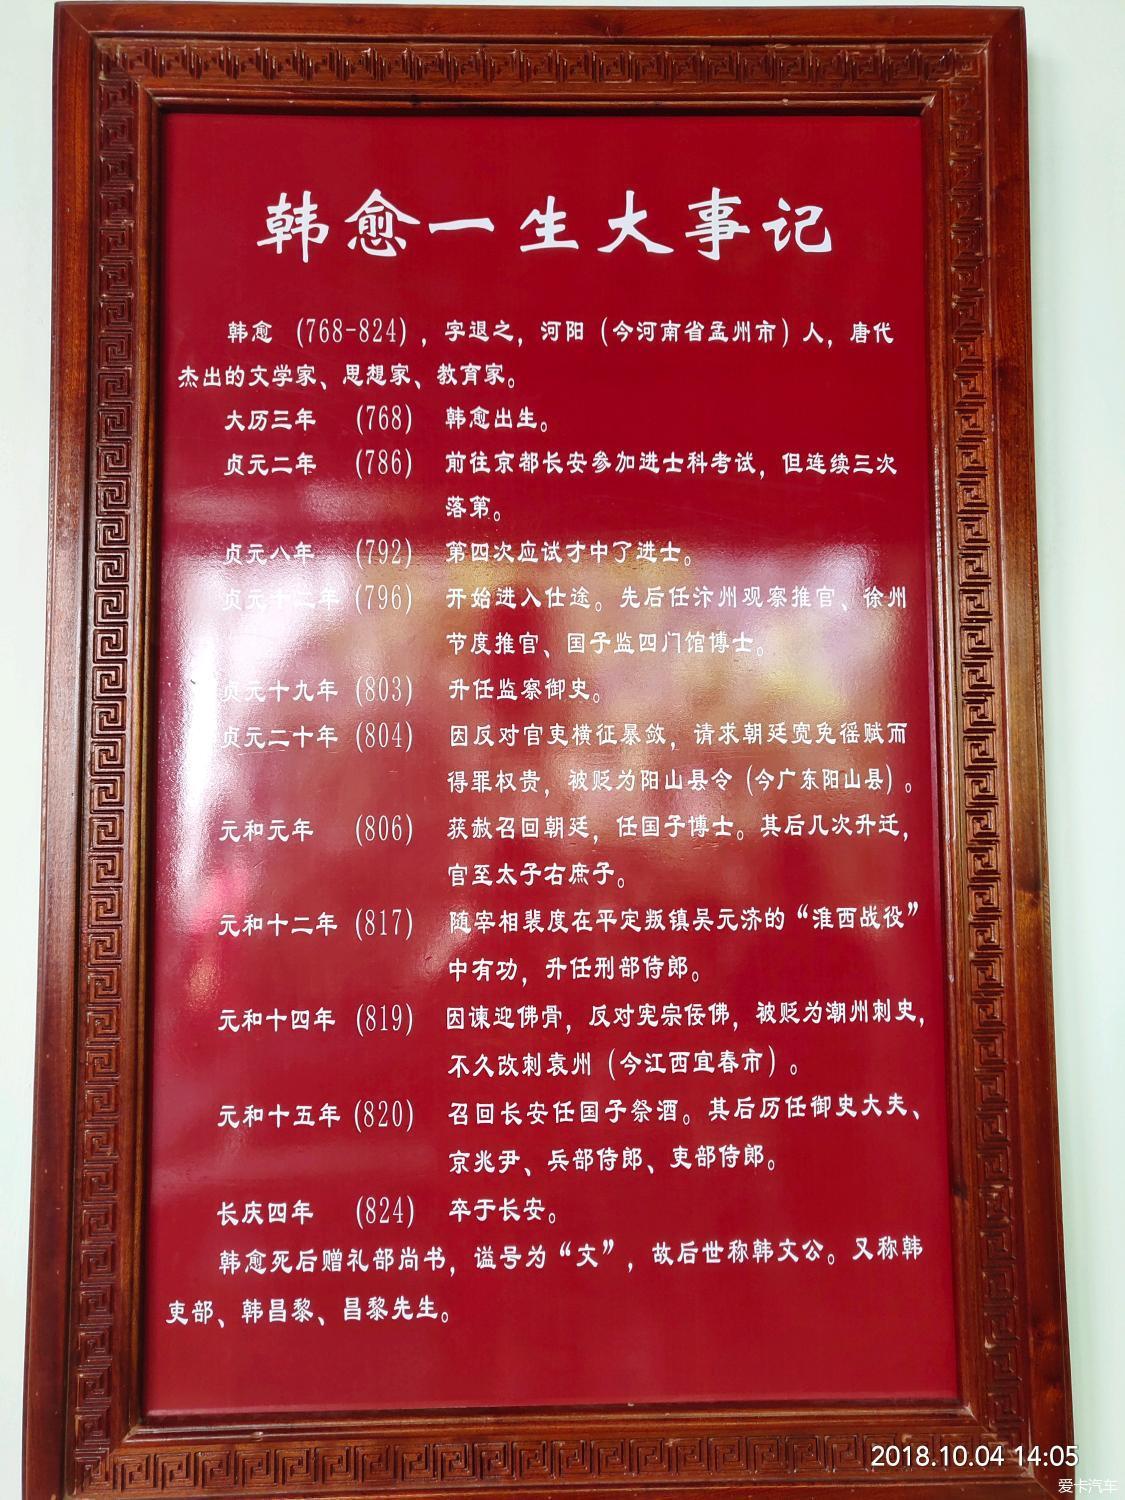 韩愈一生大事记
韩愈 (768-824)，字退之，河阳（今河南省孟州市）人，唐代
杰出的文学家、思想家、教育家。
大历三年 (768) 韩愈出生。
贞元二年 (786) 前往京都长安参加进士科考试，但连续三次
落第。
贞元八年 (792) 第四次应试才中了进士。
贞元十二年 (796) 开始进入仕途。先后任汴州观察推官、徐州
节度推官、国子监四门馆博士。
贞元十九年 (803) 升任监察御史。
贞元二十年 (804) 因反对官吏横征暴敛，请求朝廷宽免徭赋而
得罪权贵，被贬为阳山县令（今广东阳山县）。
元和元年 (806) 获赦召回朝廷，任国子博士。其后几次升迁，
官至太子右庶子。
元和十二年 (817) 随宰相裴度在平定叛镇吴元济的“淮西战役”
中有功，升任刑部侍郎。
元和十四年 (819) 因谏迎佛骨，反对宪宗佞佛，被贬为潮州刺史，
不久改刺袁州（今江西宜春市）。
元和十五年 (820) 召回长安任国子祭酒。其后历任御史大夫、
京兆尹、兵部侍郎、吏部侍郎。
长庆四年 (824) 卒于长安。
韩愈死后赠礼部尚书，谥号为“文”，故后世称韩文公。又称韩
吏部、韩昌黎、昌黎先生。
2018.10.04 14:05
爱卡汽车